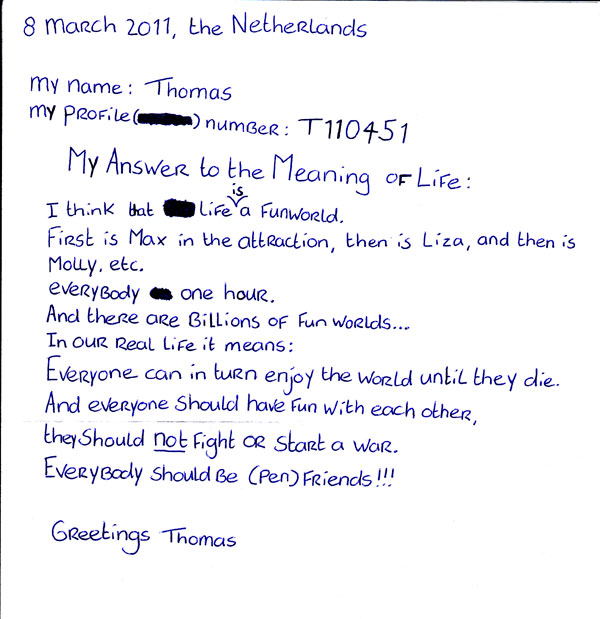 8 March 2011, the Netherlands
My name: Thomas
My profile() number: T110451
My Answer to the Meaning of Life:
I think that life is a funworld.
First is Max in the attraction, then is Liza, and then is
Molly. etc.
everybody one hour.
And there are billions of fun worlds...
In our real life it means:
Everyone can in turn enjoy the world until they die.
And everyone should have fun with each other,
they should not fight or start a war.
Everybody should be (pen) friends!!!
Greetings Thomas